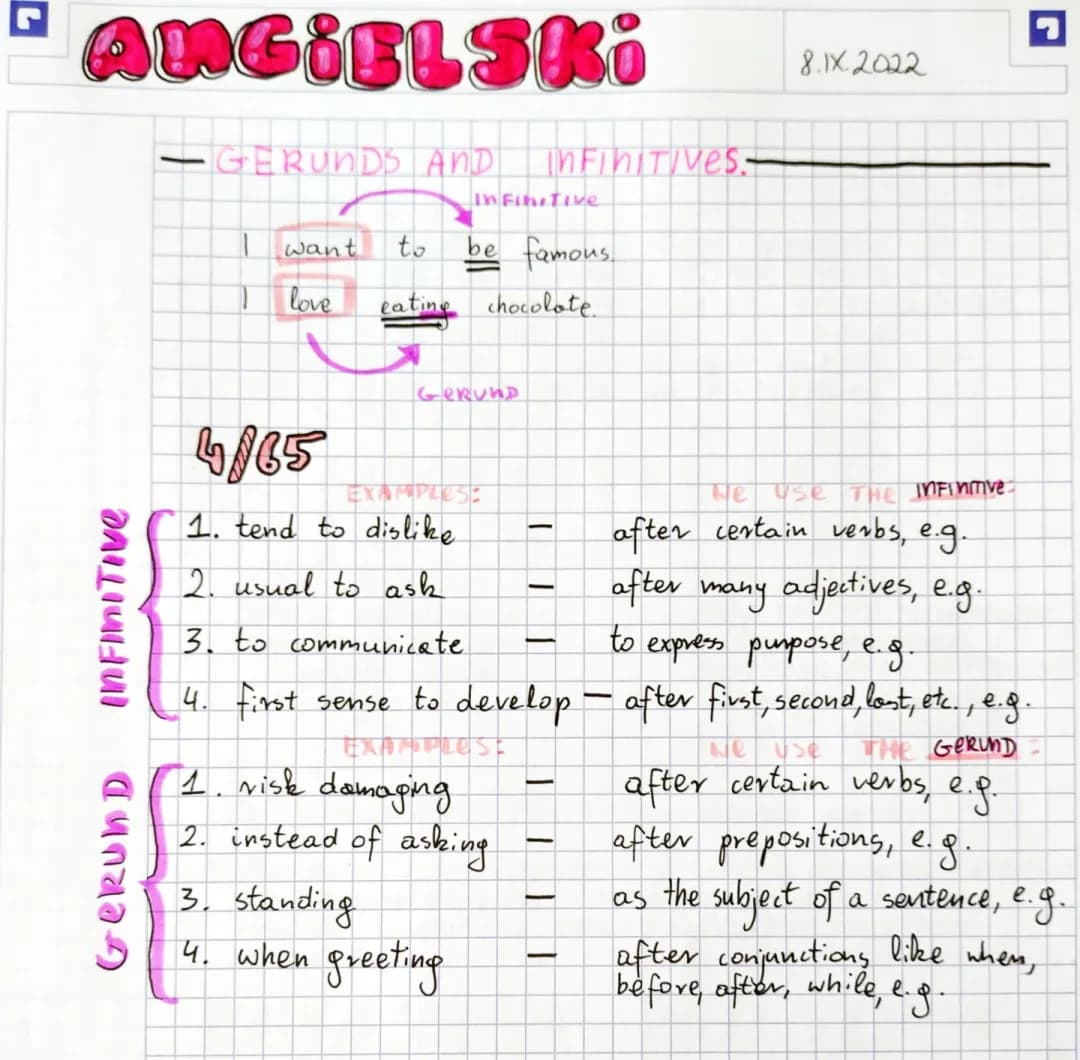 ANGiELSKi
8.IX.2022
GERUNDS AND INFINITIVES.
INFINITIVE
I want to be famous.
I love eating chocolate.
GERUND
4/65
EXAMPLES: WE USE THE INFINITIVE:
INFINITIVE
1. tend to dislike – after certain verbs, e.g.
2. usual to ask – after many adjectives, e.g.
3. to communicate – to express purpose, e.g.
4. first sense to develop – after first, second, last, etc., e.g.
EXAMPLES: WE USE THE GERUND:
GERUND
1. risk damaging – after certain verbs, e.g.
2. instead of asking – after prepositions, e.g.
3. standing – as the subject of a sentence, e.g.
4. when greeting – after conjunctions like when,
before, after, while, e.g.